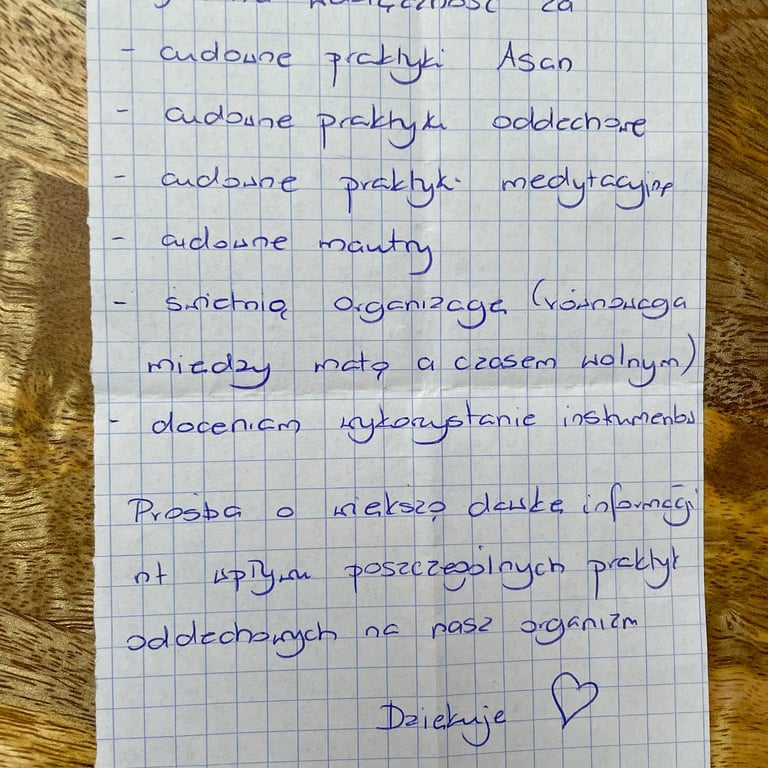 wdzięczność za
- cudowne praktyki Asan
- cudowne praktyki oddechowe
- cudowne praktyki medytacyjne
- cudowne mantry
- świetną organizację (równowaga
między matą a czasem wolnym)
- doceniam wykorzystanie instrumentów
Prośba o większą dawkę informacji
nt wpływu poszczególnych praktyk
oddechowych na nasz organizm
Dziękuję